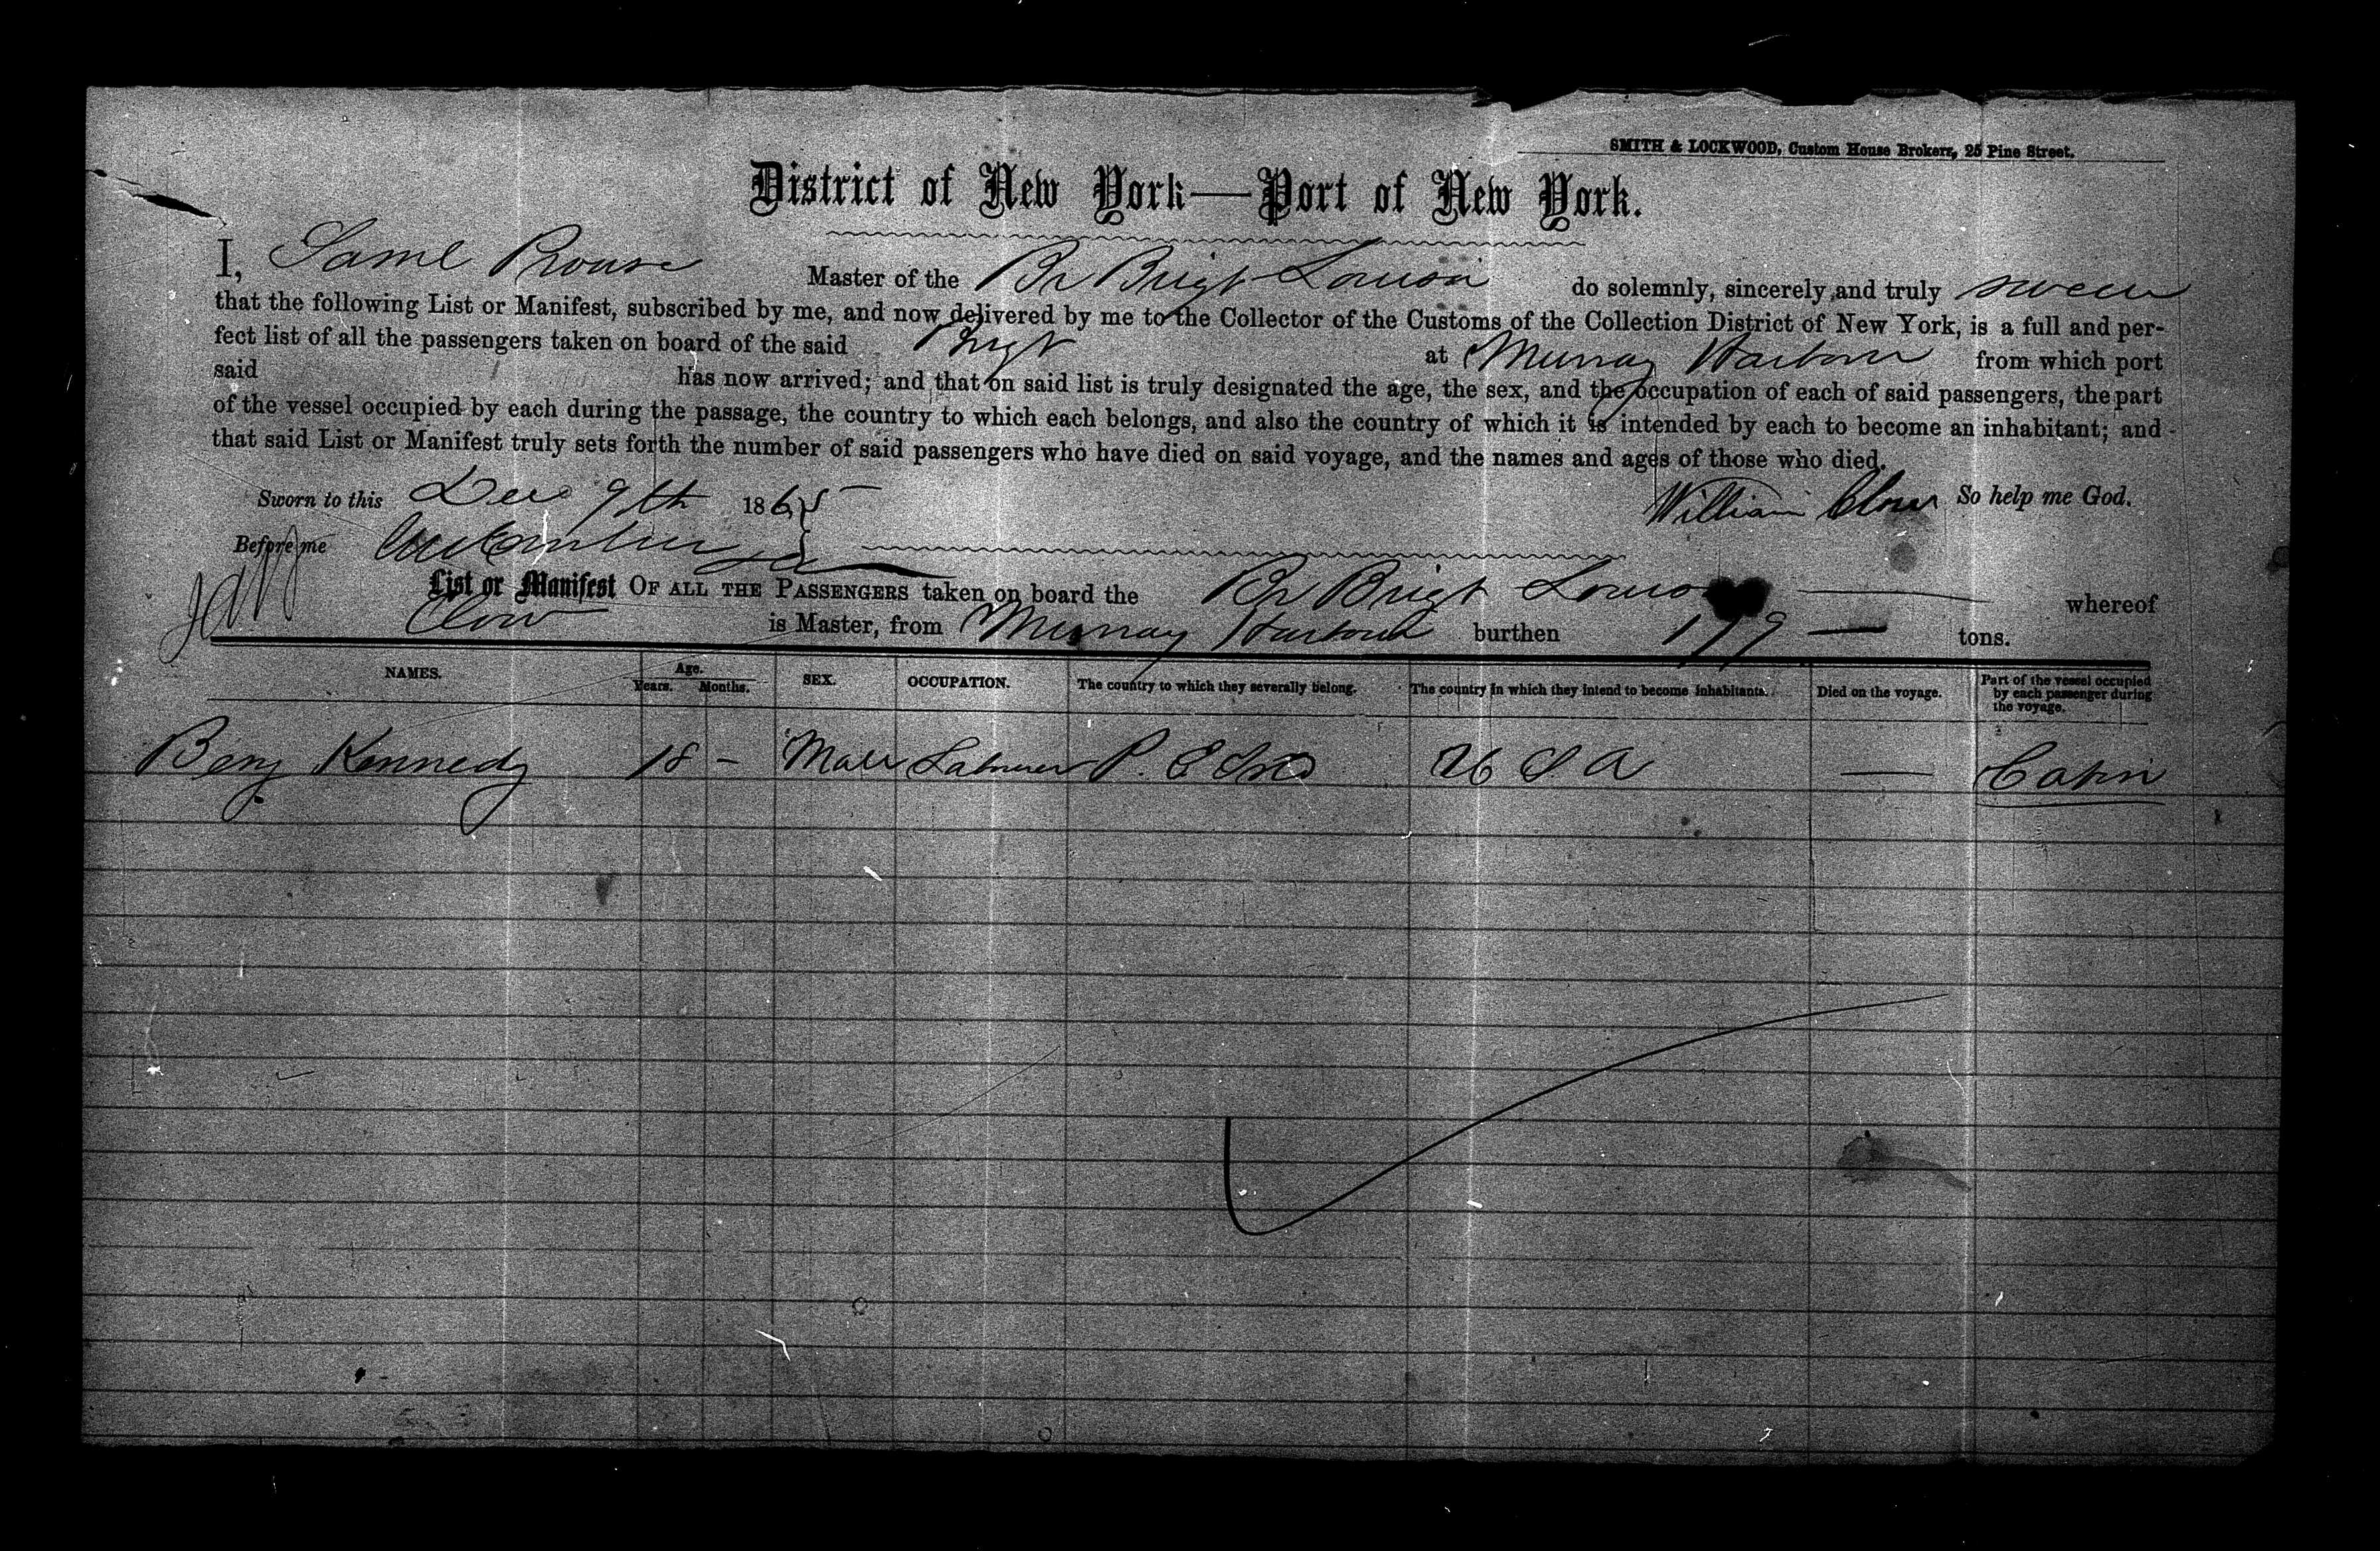 SMITH & LOCKWOOD, Custom House Brokers, 25 Pine Street.
District of New York—Port of New York.
I, Saml Rouse Master of the Br Brigt Louisa do solemnly, sincerely and truly swear
that the following List or Manifest, subscribed by me, and now delivered by me to the Collector of the Customs of the Collection District of New York, is a full and per-
fect list of all the passengers taken on board of the said Brigt at Murray Harbour from which port
said has now arrived; and that on said list is truly designated the age, the sex, and the occupation of each of said passengers, the part
of the vessel occupied by each during the passage, the country to which each belongs, and also the country of which it is intended by each to become an inhabitant; and
that said List or Manifest truly sets forth the number of said passengers who have died on said voyage, and the names and ages of those who died.
Sworn to this Dec 9th 1865 William Clow So help me God.
Before me
List or Manifest OF ALL THE PASSENGERS taken on board the Br Brigt Louisa whereof
Clow is Master, from Murray Harbour burthen 179 tons.
NAMES. Age. Years. Months. SEX. OCCUPATION. The country to which they severally belong. The country in which they intend to become inhabitants. Died on the voyage. Part of the vessel occupied by each passenger during the voyage.
Benj Kennedy 18 - Male Labourer P. E Isld U S A — Cabin